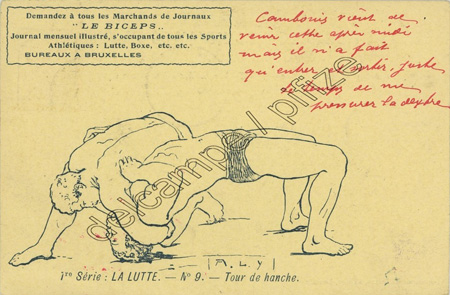 Demandez à tous les Marchands de Journaux
"LE BICEPS„
Journal mensuel illustré, s'occupant de tous les Sports
Athlétiques : Lutte, Boxe, etc. etc.
BUREAUX A BRUXELLES
Cambouis vient de
venir cette après midi
mais il n'a fait
qu'entrer et sortir, juste
le temps de me
pressurer la dextre
delcampe / pfize
ALY
1re Série : LA LUTTE. — No 9. — Tour de hanche.